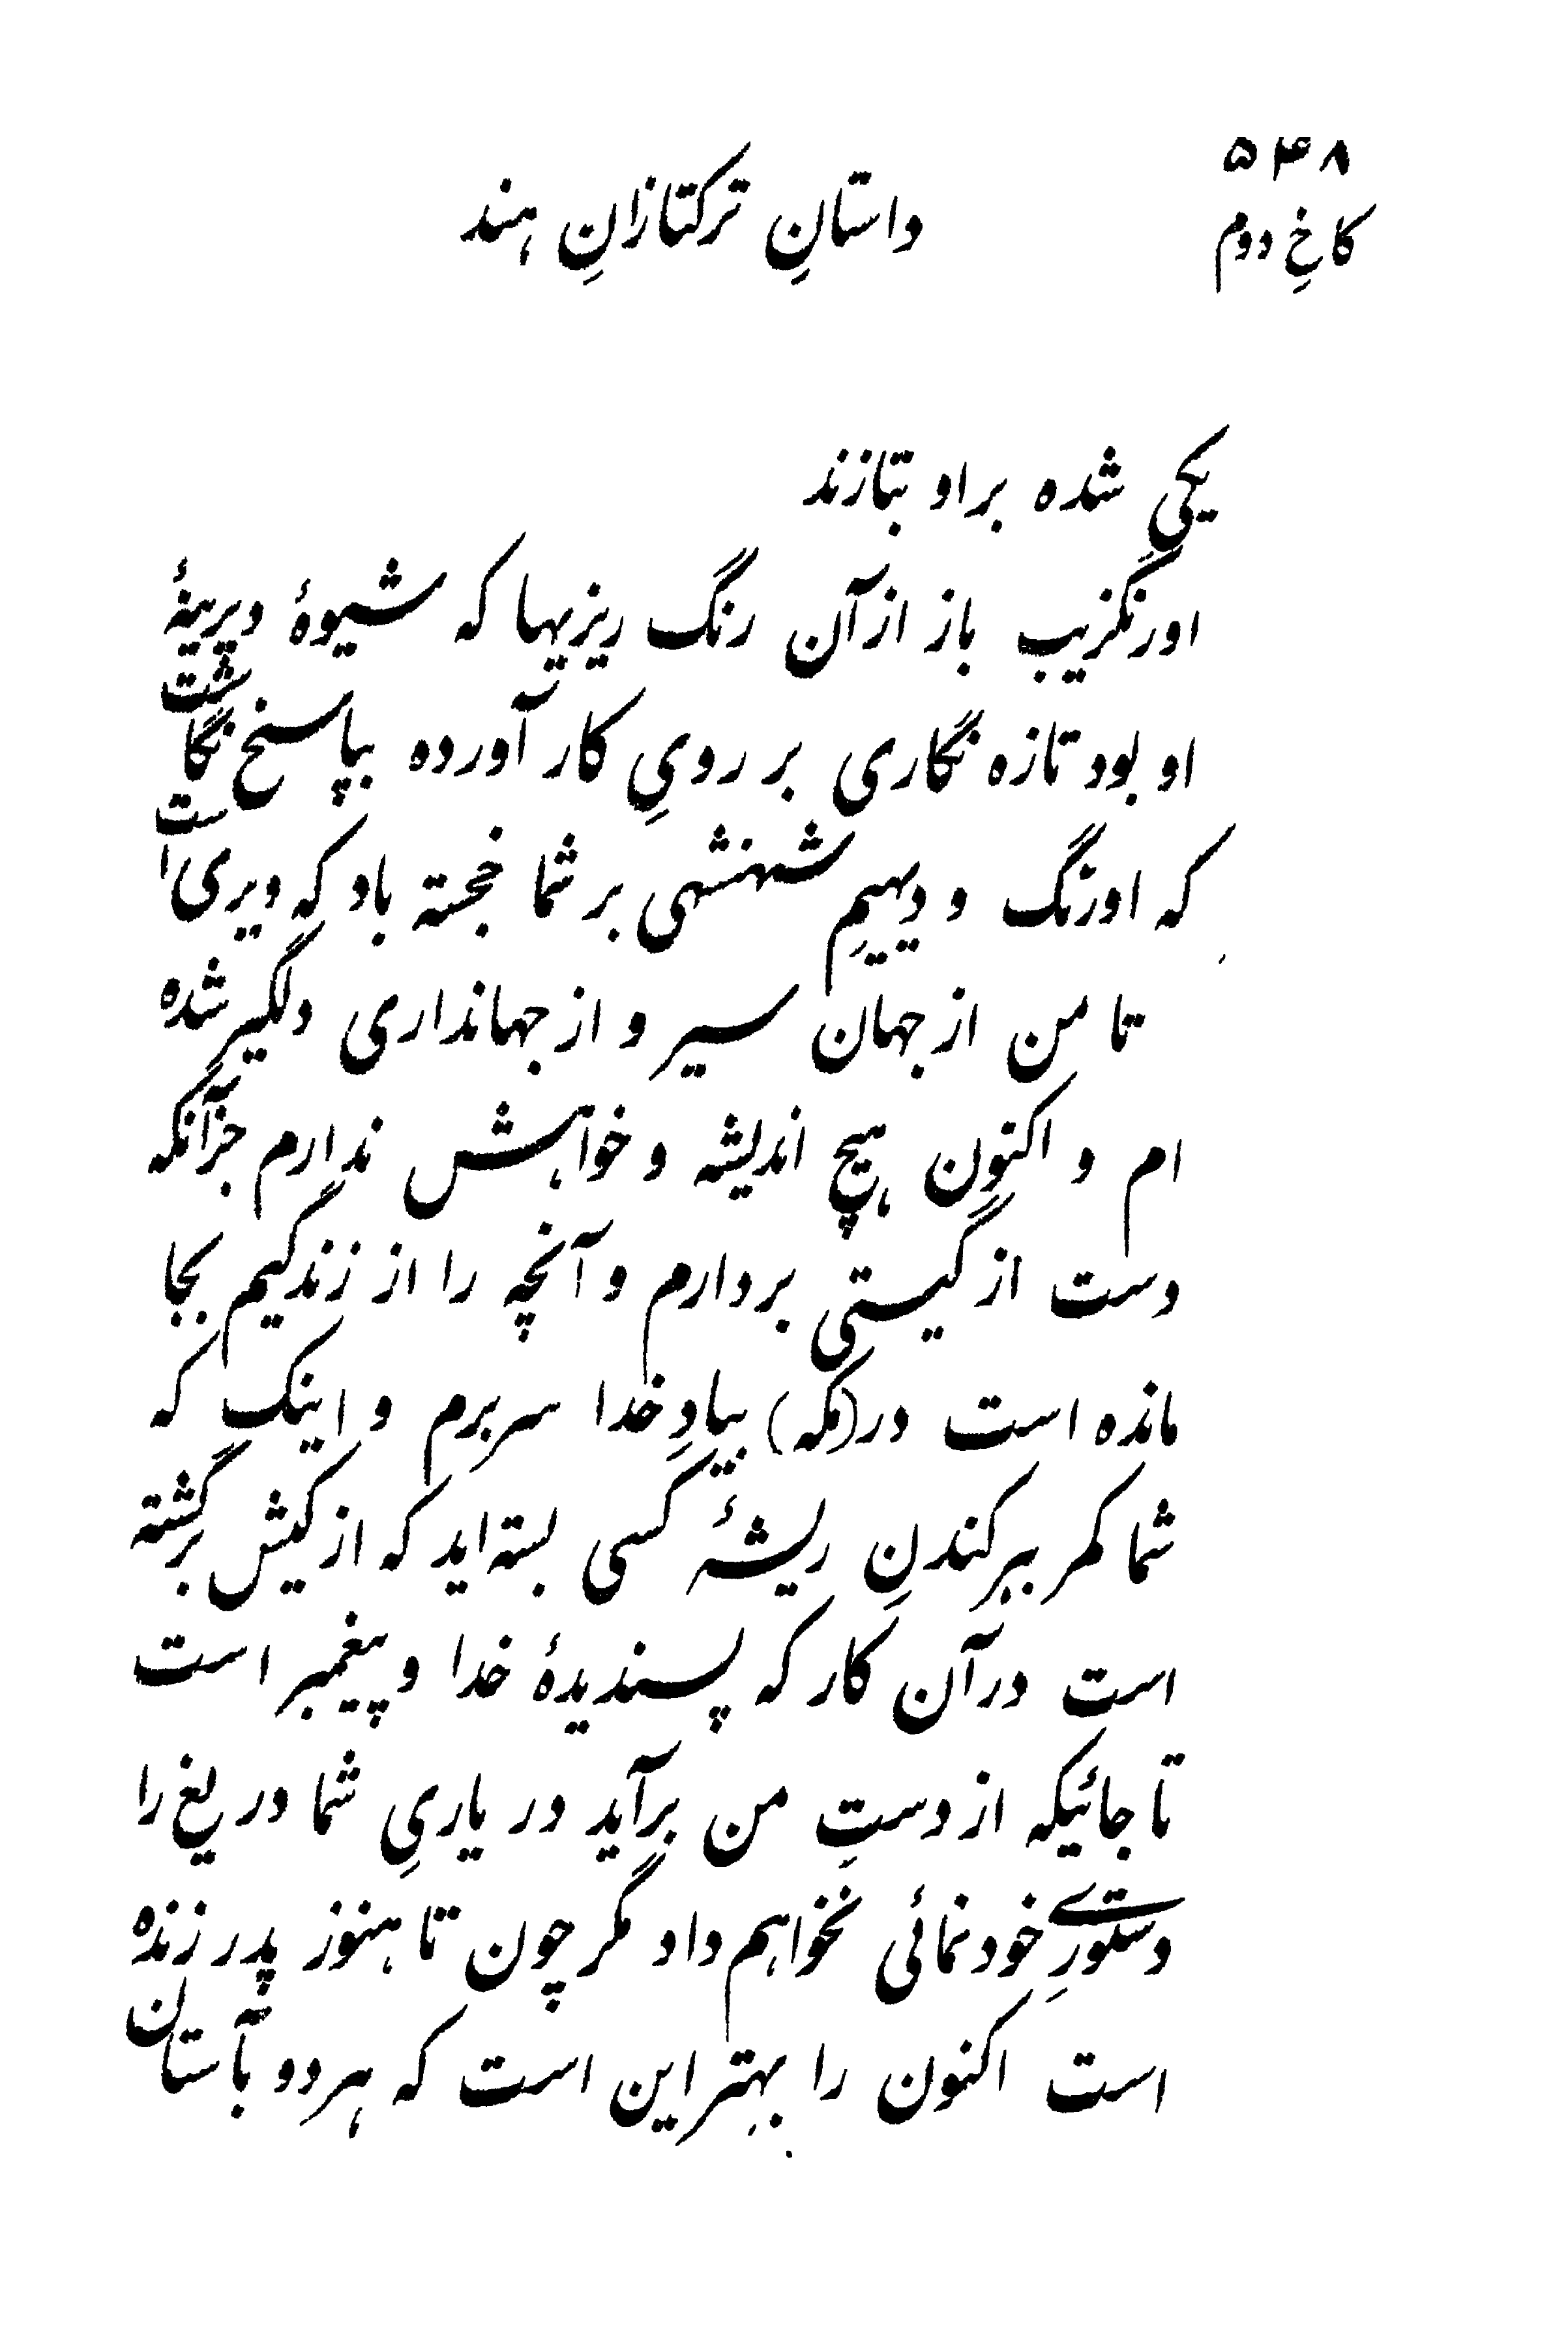 ۵۴۸
کاخِ دوم
داستانِ ترکتازانِ هند
یکی شده بر او بتازند
اورنگزیب باز از آن رنگ ریزیها که شیوهٔ دیرینهٔ
او بود تازه نگاری بر رویِ کار آورده بپاسخ نگاشت
که اورنگ و دیهیمِ شهنشهی بر شما خجسته باد که دیری است
تا من از جهان سیر و از جهانداری دلگیر شده
ام و اکنون هیچ اندیشه و خواهش ندارم جز آنکه
دست از گیتی بردارم و آنچه را از زندگیم بجا
مانده است در (مکه) بیادِ خدا سر برم و اینک که
شما کمر ببر کندنِ ریشهٔ کسی بسته اید که از کیش برگشته
است در آن کار که پسندیدهٔ خدا و پیغمبر است
تا جائیکه از دستِ من برآید در یاریِ شما دریغ را
دستورِی خودنمائی نخواهم داد مگر چون تا هنوز پدر زنده
است اکنون را بهتر این است که هر دو بآستان